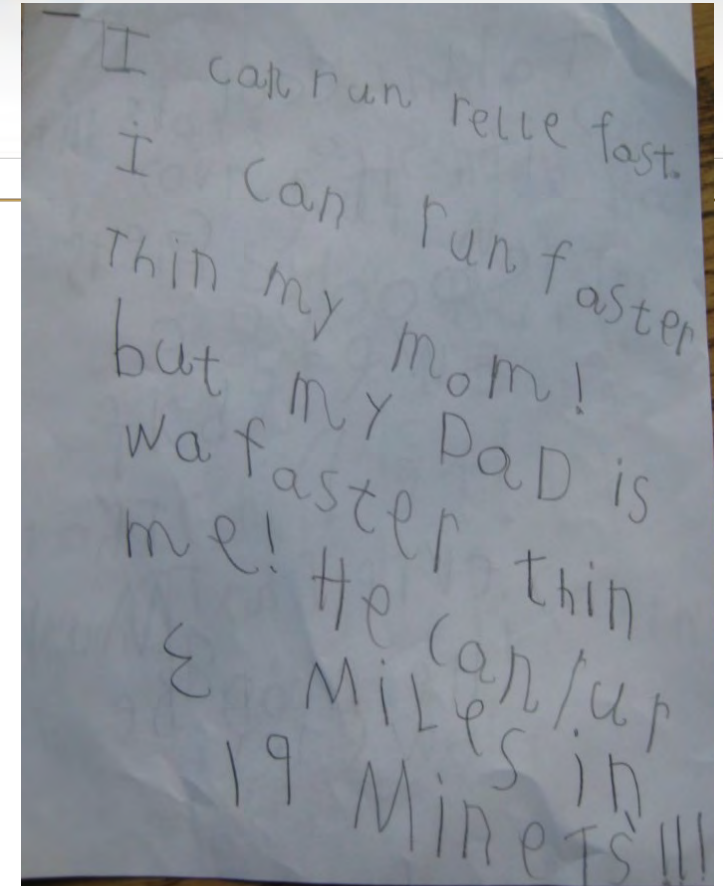 I can run relle fast.
i can run faster
Thin my mom!
but my DaD is
wa faster thin
me! He can rur
3 MiLes in
19 Minets!!!